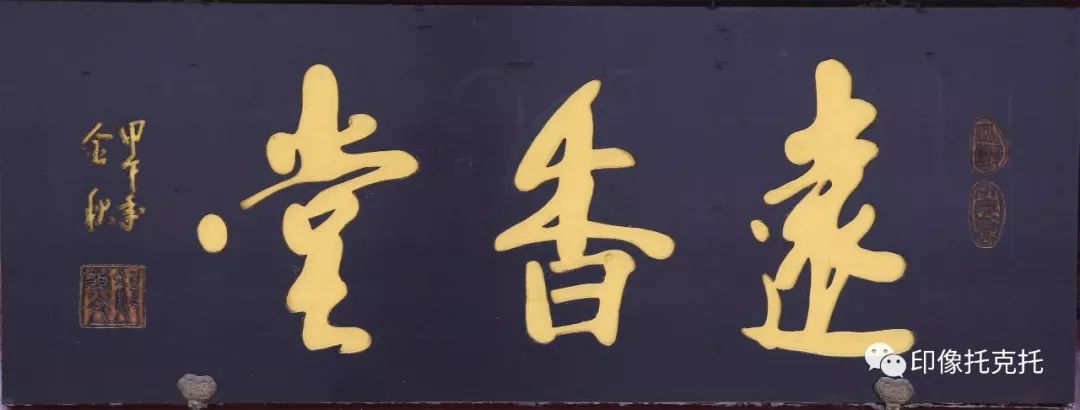 遠香堂
甲午年
金秋
印像托克托